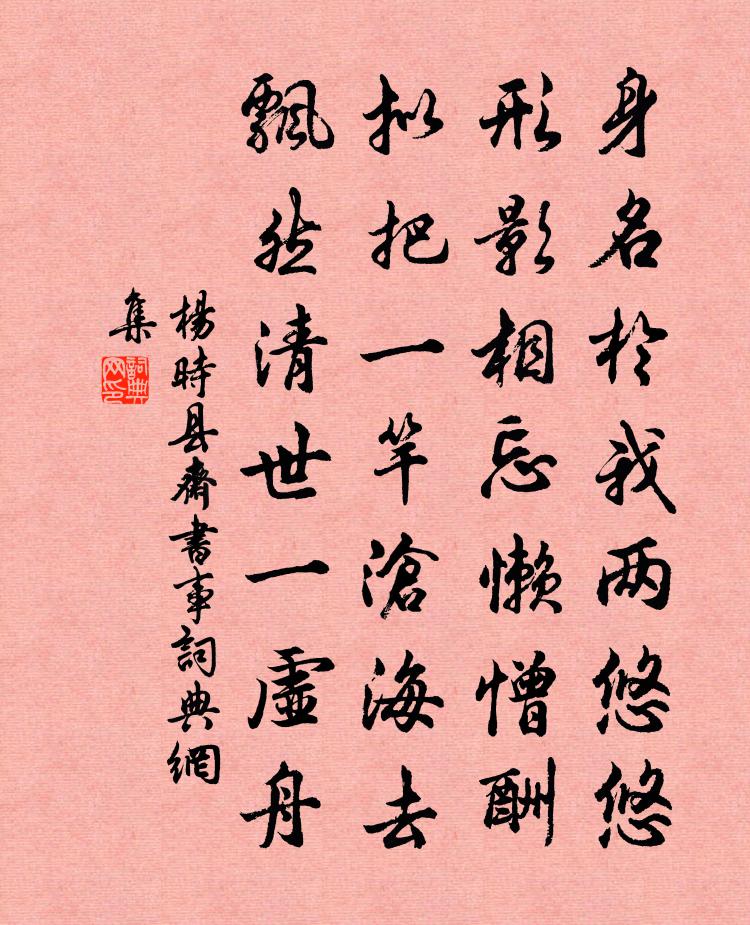 身名於我两悠悠
形影相忘懒憎酬
拟把一竿滄海去
飄然清世一虛舟
楊時县齋書事詞典網
集
詞典
网印